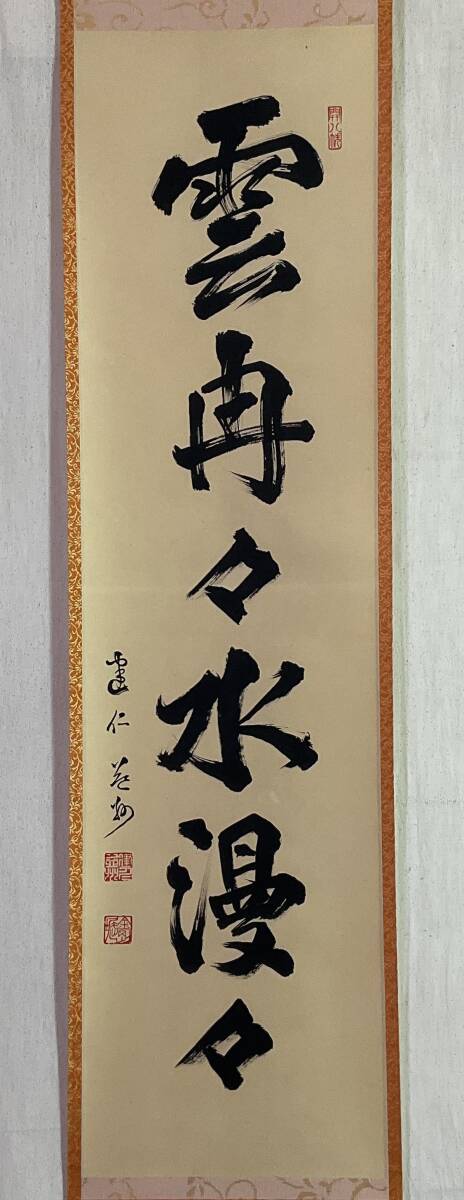 雲冉々水漫々
建仁 益州